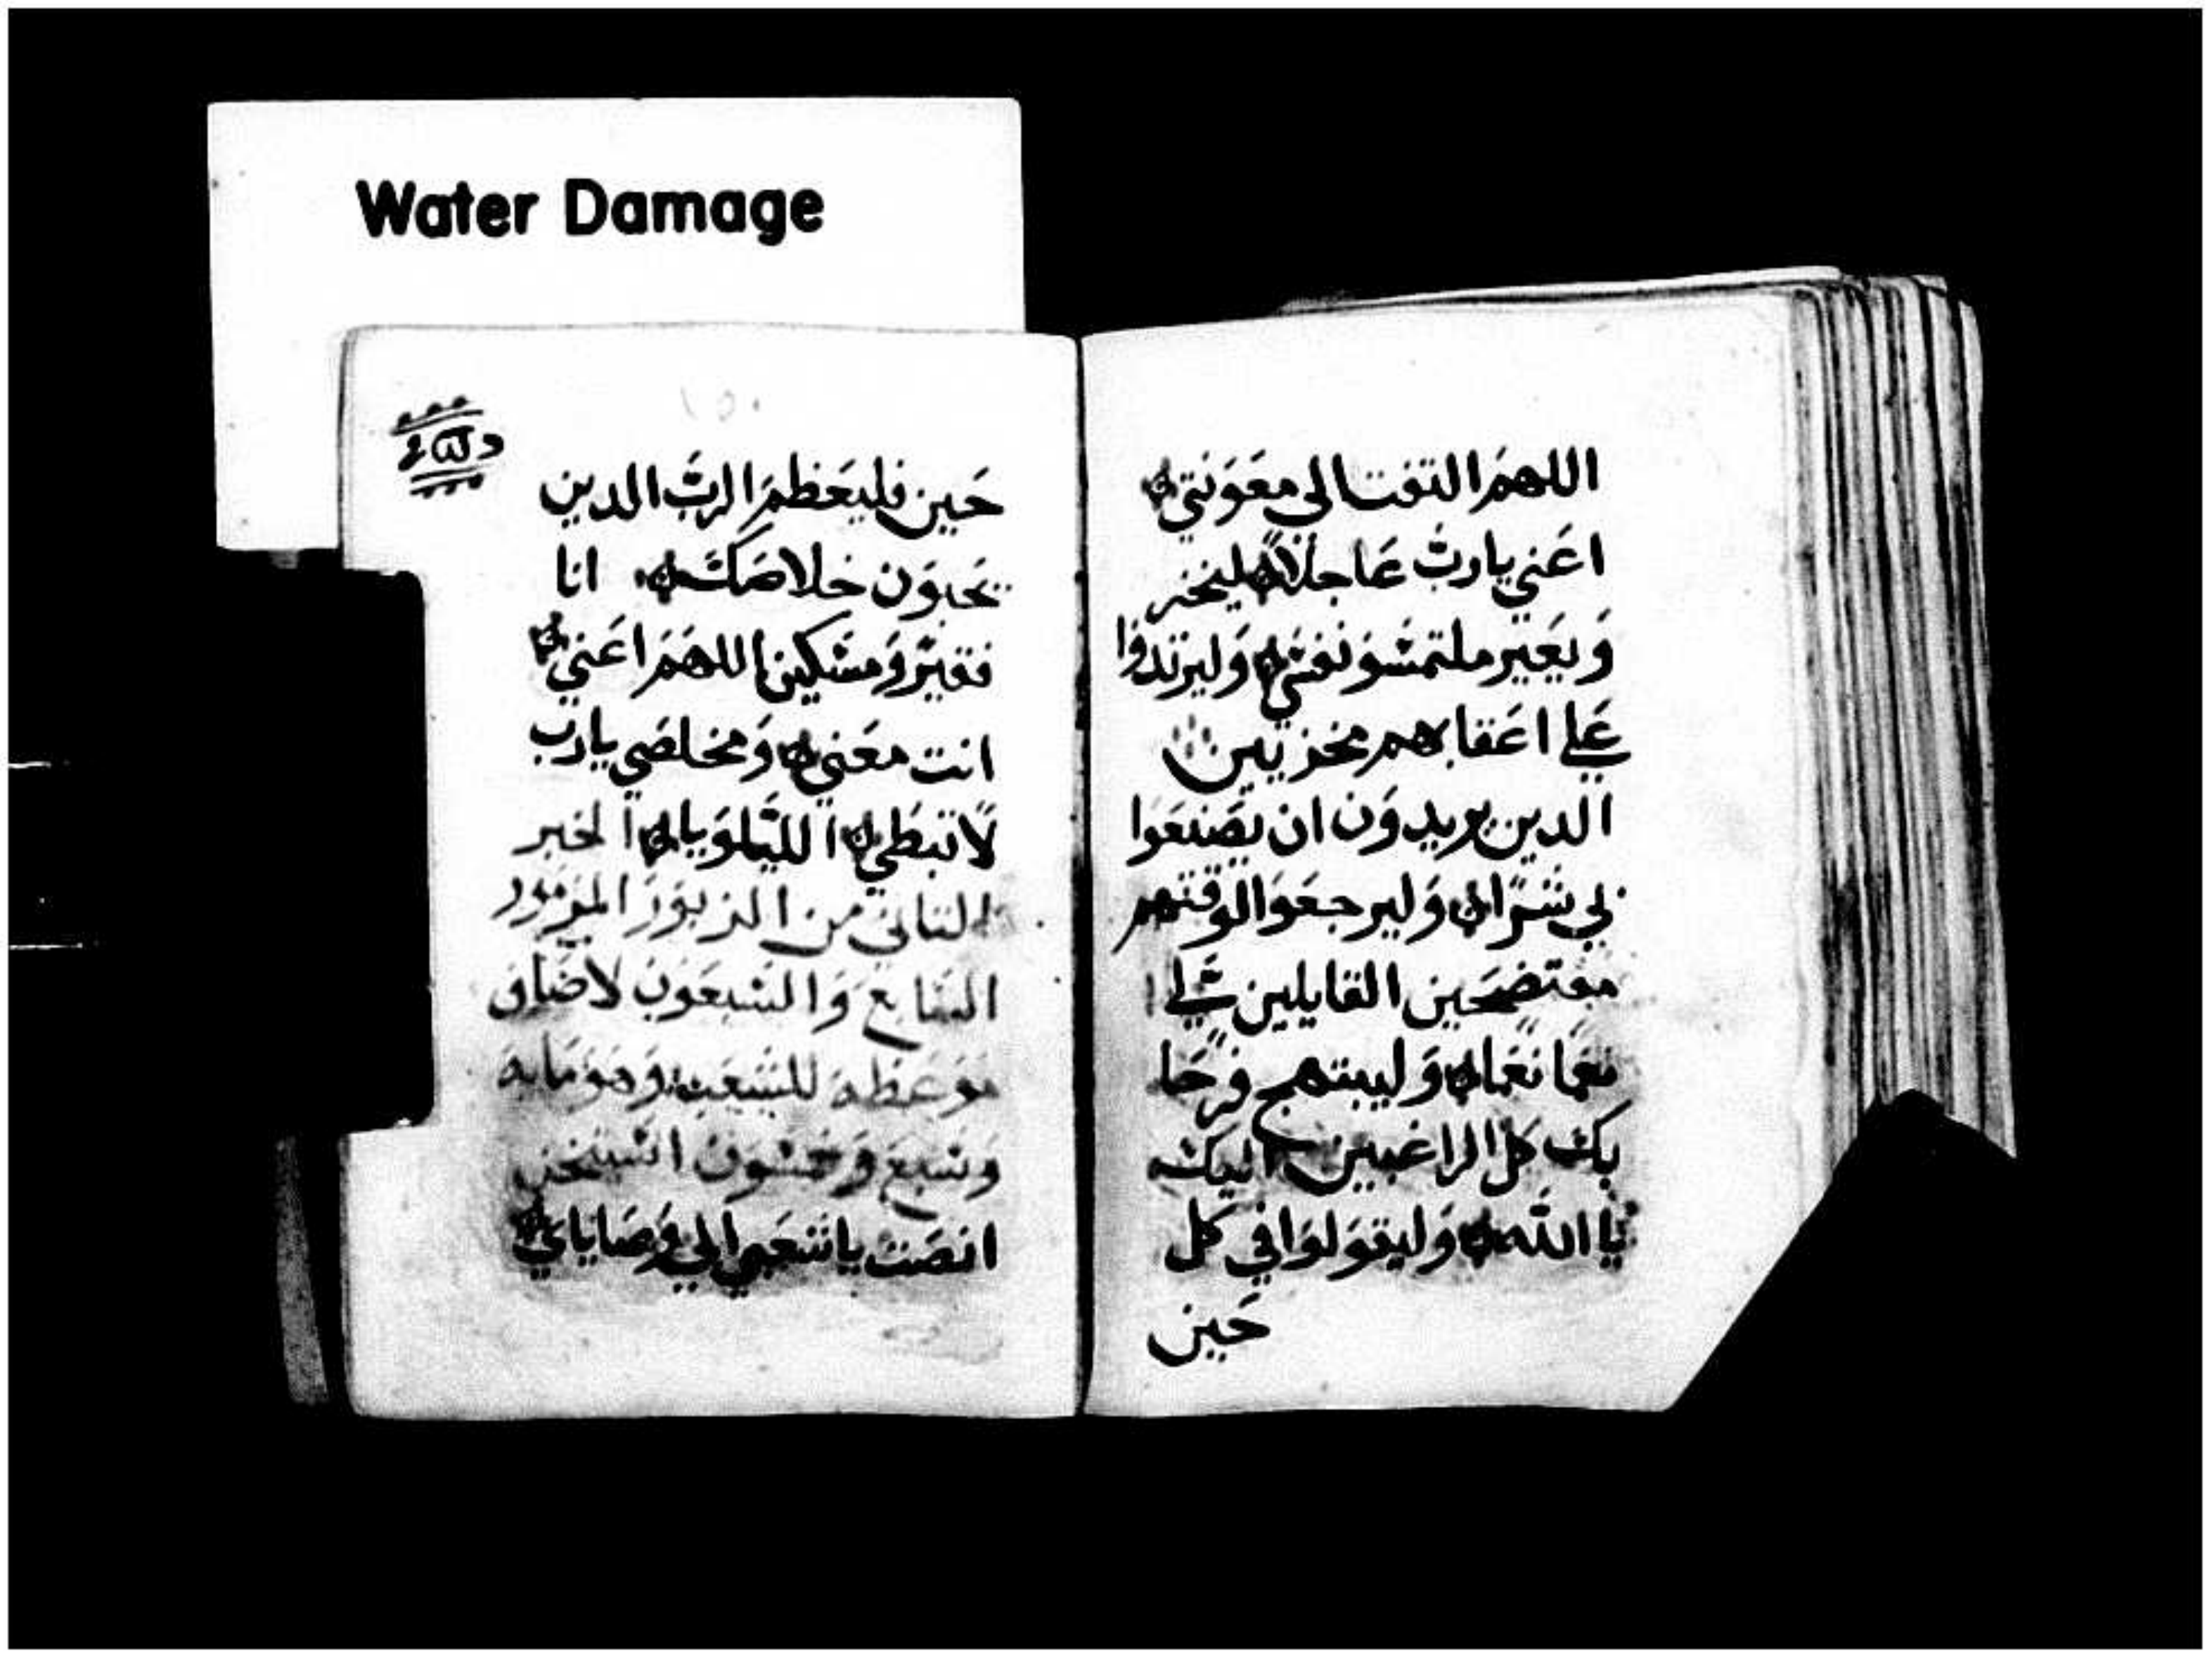 Water Damage
اللهمَ التفت الي معَوَنتي
اعَني يا ربَّ عَاجلاً ليخز
وَيعَير ملتمسَوَ نفسَي وَليرتدوا
عَلي اعَقابهم مخزيين
الدين يريدوَن ان يصَنعَوا
لي شرًا وَليرجعَوَا لوقتهم
مفتضحَين القايلين لي
نعَما نعَما وَليبتهج وَفرحَا
بك كل الراغبين اليك
يا الله وَليقوَلوَا في كل
حَين
١٥٠
حَين فليعَظمَ الربَّ الدين
يحَبوَن خلاصَك انا
فقيرٌ وَمسَكين اللهمَ اعَني
انت معَني وَمخلصَي يا رب
لا تبطي الليلوَيا الخبر
التاني من الزبوَر المزمور
السَابع وَالسَبعَوَن لاضَاف
موَعَظة للشعَب وَهوَ ماية
وَسَبع وَخمسَوَن استيخن
انصَت يا شعَبي الي وَصَاياي